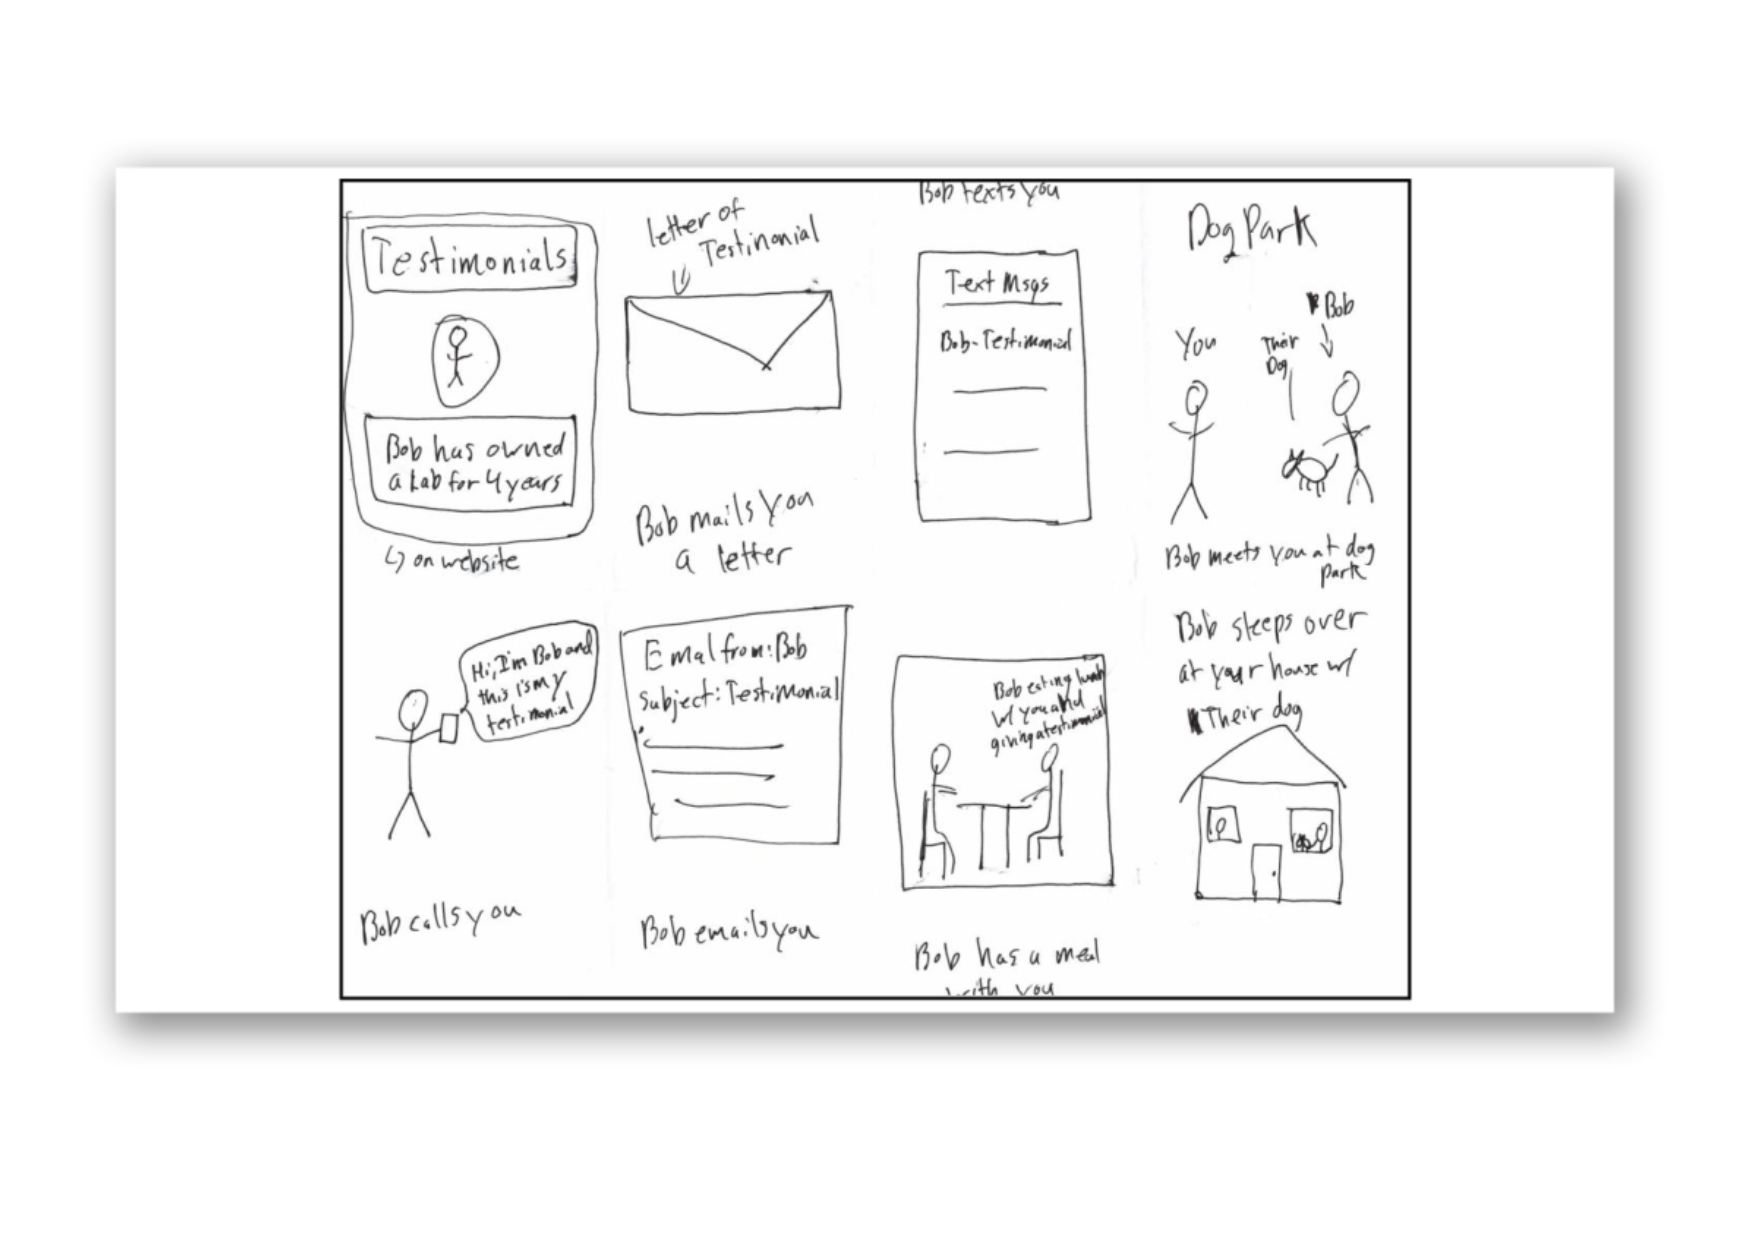 Testimonials
Bob has owned
a Lab for 4 years
↳ on website
letter of
Testinonial
Bob mails you
a letter
Bob texts you
Text Msgs
Bob-Testimonial
Dog Park
You
Their
Dog
Bob
Bob meets you at dog
park
Hi, I'm Bob and
this is my
testimonial
Bob calls you
Emal from: Bob
Subject: Testimonial
Bob emails you
Bob eating lunch
w/ you and
giving a testimonial
Bob has a meal
with you
Bob sleeps over
at your house w/
Their dog